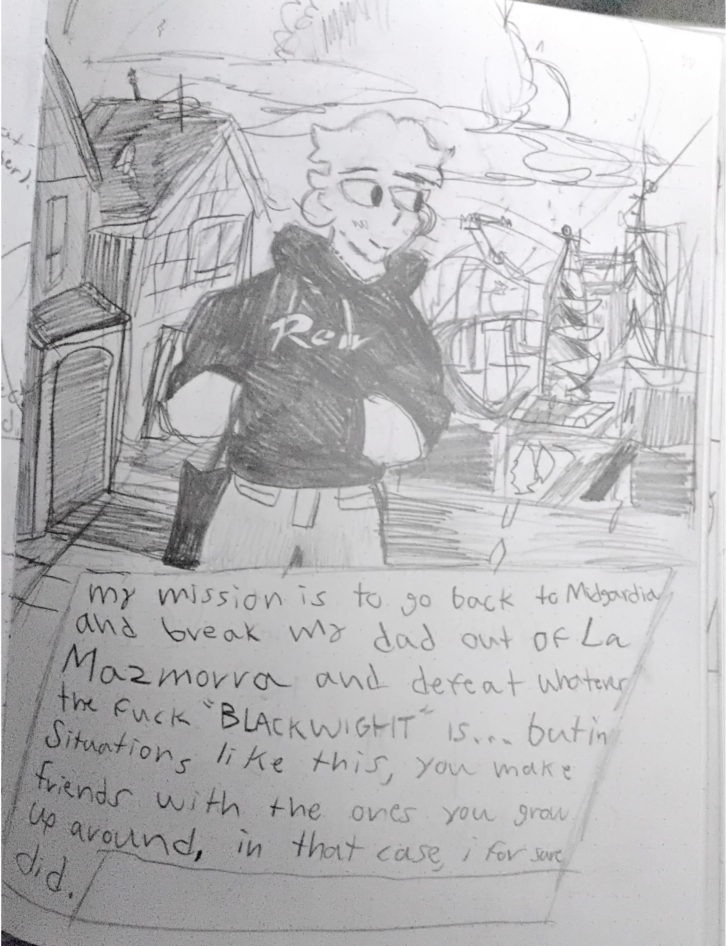 Rew
my mission is to go back to Midgardia
and break my dad out of La
Mazmorra and defeat whatever
the fuck "BLACKWIGHT" is... but in
Situations like this, you make
friends with the ones you grow
up around, in that case, i for sure
did.